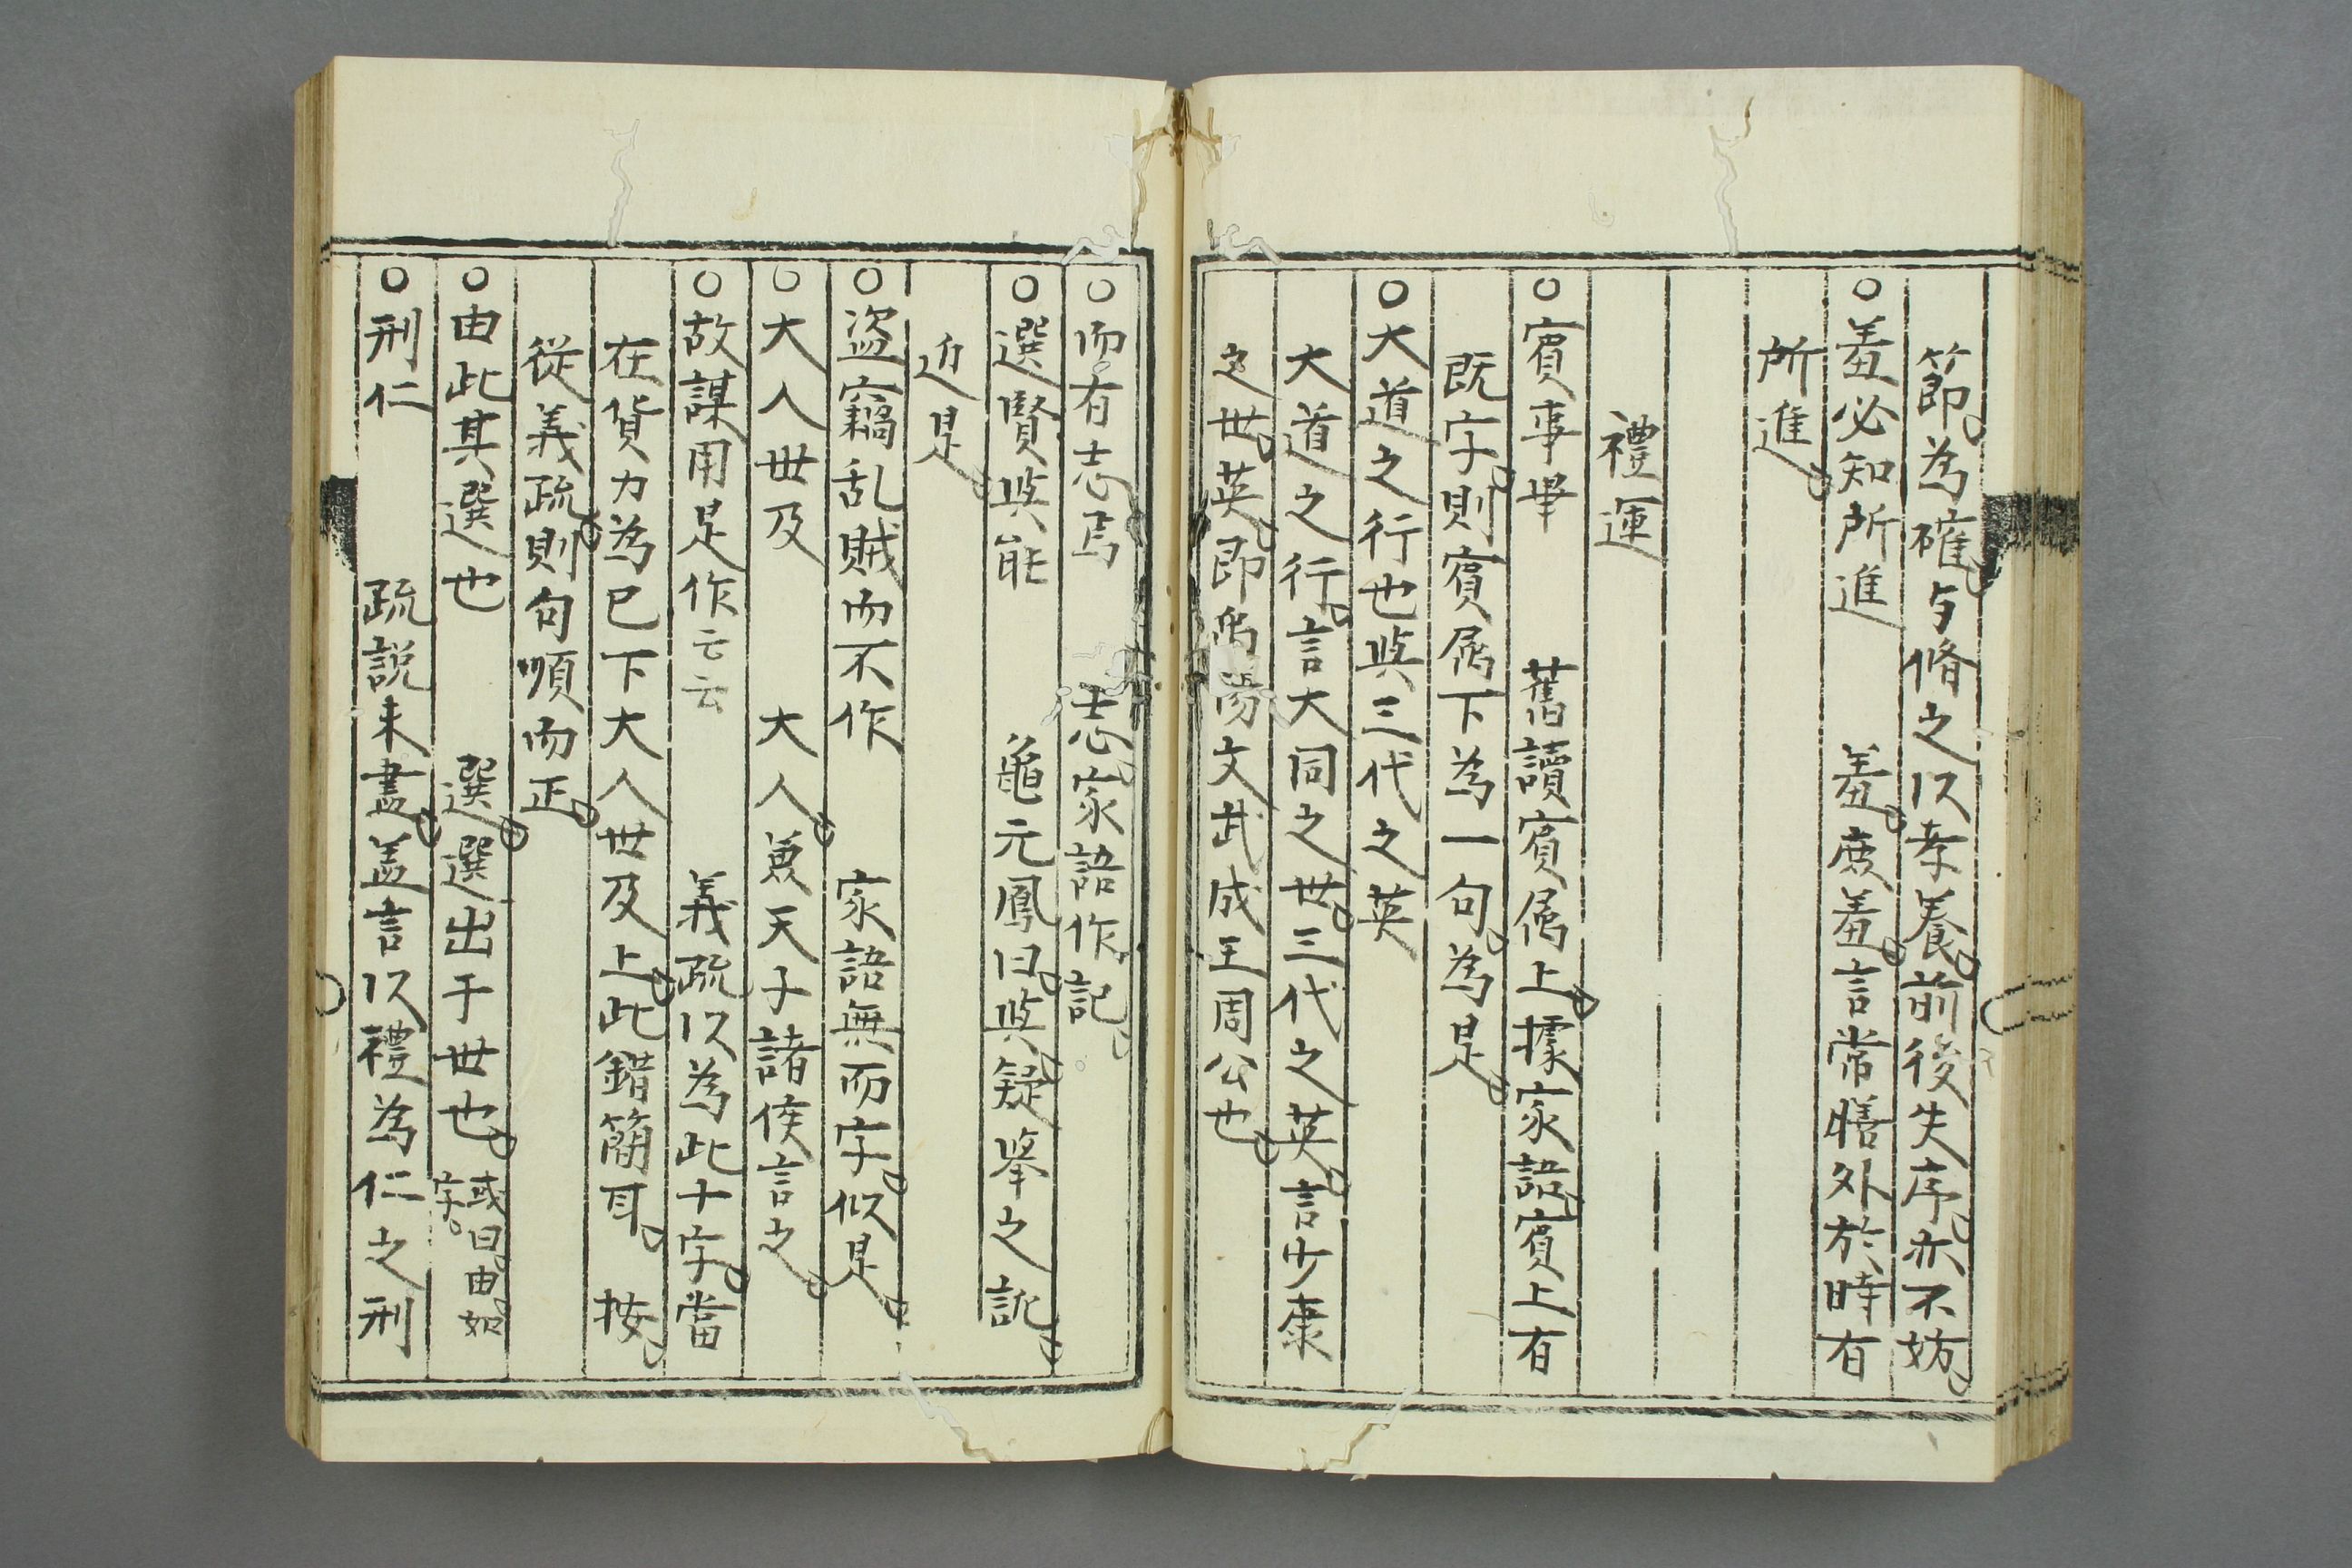 節。為確。与脩之以孝養。前後失序。亦不妨。
○羞必知所進　羞。庶羞。言常膳外於時有
所進。
禮運
○賓事畢　舊讀賓屬上。據家語。賓上有
既字。則賓屬下為一句。為是。
○大道之行也與三代之英
大道之行。言大同之世。三代之英。言少康
之世。英。即禹湯文武成王周公也。
○而有志焉　志。家語作記。
○選賢與能　龜元鳳曰。與。疑擧之訛。
近是。
○盗竊乱賊而不作　家語無而字。似是。
○大人世及　大人。兼天子諸侯言之。
○故謀用是作云云　義疏以為此十字。當
在貨力為已下大人世及上。此錯簡耳。按。
從義疏。則句順而正。
○由此其選也　選。選出于世也。或曰。由。如字。
○刑仁　疏説未盡。盖言以禮為仁之刑